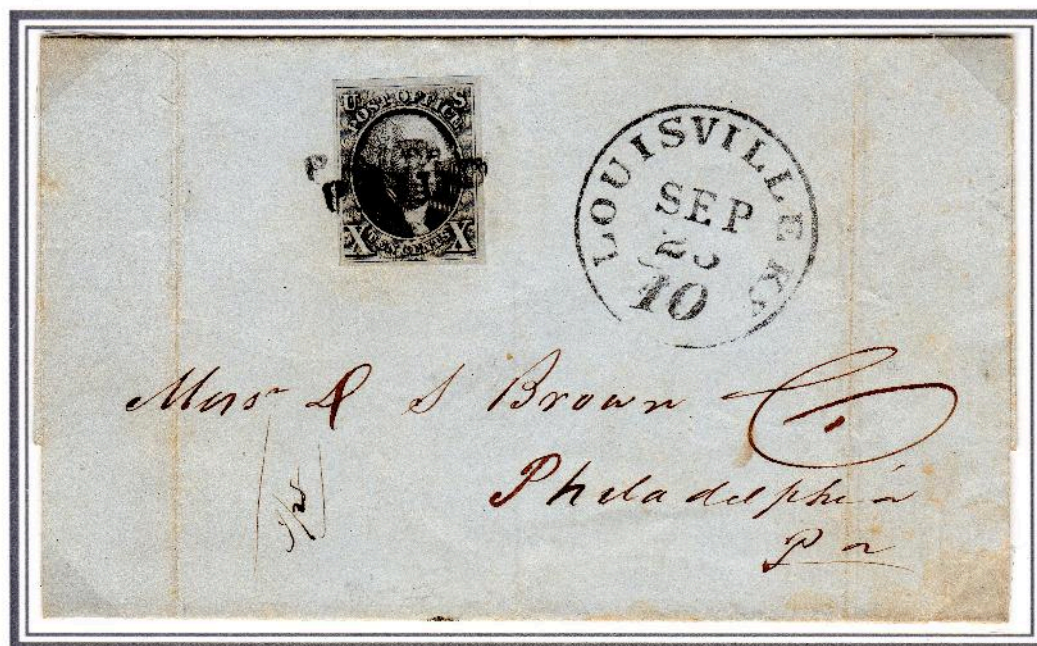 U S
POST OFFICE
X TEN CENTS X
LOUISVILLE Ky
SEP
10
Mess D S Brown Co
Philadelphia
Pa